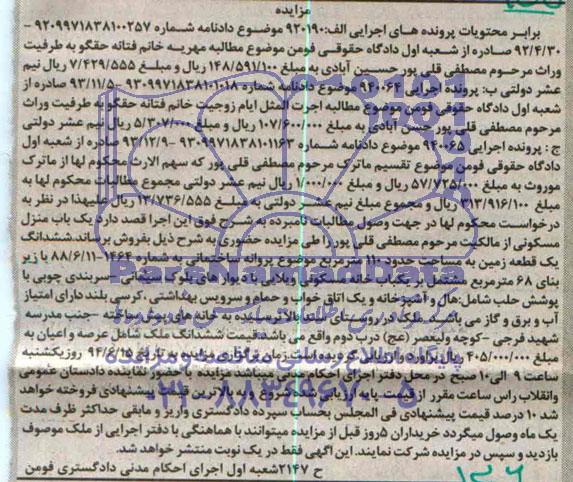 مزایده
برابر محتویات پرونده های اجرایی الف: ۹۲۰۱۹۰ موضوع دادنامه شماره ۹۲۰۹۹۷۱۸۳۸۱۰۰۲۵۷ -
۹۲/۴/۳۰ صادره از شعبه اول دادگاه حقوقی فومن موضوع مطالبه مهریه خانم فتانه حقگو به طرفیت
وراث مرحوم مصطفی قلی پور حسین آبادی به مبلغ ۱۴۸/۵۹۱/۱۰۰ ریال و مبلغ ۷/۴۲۹/۵۵۵ ریال نیم
عشر دولتی ب: پرونده اجرایی ۹۴۰۰۶۴ موضوع دادنامه شماره ۹۳۰۹۹۷۱۸۳۸۱۰۱۰۱۸ -۹۳/۱۱/۵ صادره از
شعبه اول دادگاه حقوقی فومن موضوع مطالبه اجرت المثل ایام زوجیت خانم فتانه حقگو به طرفیت وراث
مرحوم مصطفی قلی پور حسن آبادی به مبلغ ۱۰۷/۶۰۰/۰۰۰ ریال و مبلغ ۵/۳۰۷/۰۰۰ ریال نیم عشر دولتی
ج: پرونده اجرایی ۹۴۰۰۶۵ موضوع دادنامه شماره ۹۳۰۹۹۷۱۸۳۸۱۰۱۱۶۳ -۹۳/۱۲/۹ صادره از شعبه اول
دادگاه حقوقی فومن موضوع تقسیم ماترک مرحوم مصطفی قلی پور که سهم الارث محکوم لها از ماترک
موروث به مبلغ ۵۷/۷۲۵/۰۰۰ ریال و مبلغ ۱/۰۰۰/۰۰۰ ریال نیم عشر دولتی مجموع مطالبات محکوم لها به
مبلغ ۳۱۳/۹۱۶/۱۰۰ ریال و مجموع مبلغ نیم عشر دولتی به مبلغ ۱۳/۷۳۶/۵۵۵ ریال علیهذا در نظر به
درخواست محکوم لها در جهت وصول مطالبات نامبرده به شرح فوق این اجرا قصد دارد یک باب منزل
مسکونی از مالکیت مرحوم مصطفی قلی پور را طی مزایده حضوری به شرح ذیل بفروش برساند.ششدانگ
یک قطعه زمین به مساحت حدود ۱۱۰ مترمربع موضوع پروانه ساختمانی به شماره ۱۴۶۴-۸۸/۶/۱۱ با زیر
بنای ۶۸ مترمربع مشتمل بر یکباب خانه مسکونی ویلایی با دیوارهای بلوک سیمانی و سربندی چوبی با
پوشش حلب شامل: هال و آشپزخانه و یک اتاق خواب و حمام و سرویس بهداشتی، کرسی بلند دارای امتیاز
آب و برق و گاز می باشد. ملک در روستای خانه های پیش ساخته - جنب مدرسه
شهید فرجی -کوچه ولیعصر (عج) درب دوم واقع می باشد قیمت ششدانگ ملک شامل عرصه و اعیان به
مبلغ ۴۰۵/۰۰۰/۰۰۰ ریال برآورد و ارزیابی گردیده است.زمان برگزاری مزایده به تاریخ ۹۴/۶/۱۵ روز یکشنبه
ساعت ۹ الی ۱۰ صبح در محل دفتر اجرای احکام مدنی فومن میباشد مزایده با حضور نماینده دادستان عمومی
وانقلاب راس ساعت مقرر از قیمت پایه ارزیابی شده شروع و به بالاترین قیمت پیشنهادی فروخته خواهد
شد ۱۰ درصد قیمت پیشنهادی فی المجلس بحساب سپرده دادگستری واریز و مابقی حداکثر ظرف مدت
یک ماه وصول میگردد خریداران ۵روز قبل از مزایده میتوانند با هماهنگی با دفتر اجرایی از ملک موصوف
بازدید و سپس در مزایده شرکت نمایند. این آگهی فقط در یک نوبت منتشر خواهد شد.
ح ۲۱۴۷ شعبه اول اجرای احکام مدنی دادگستری فومن
ParsNamadData
۰۲۱-۸۸۳۴۹۶۷۰-۵
۱۳۶